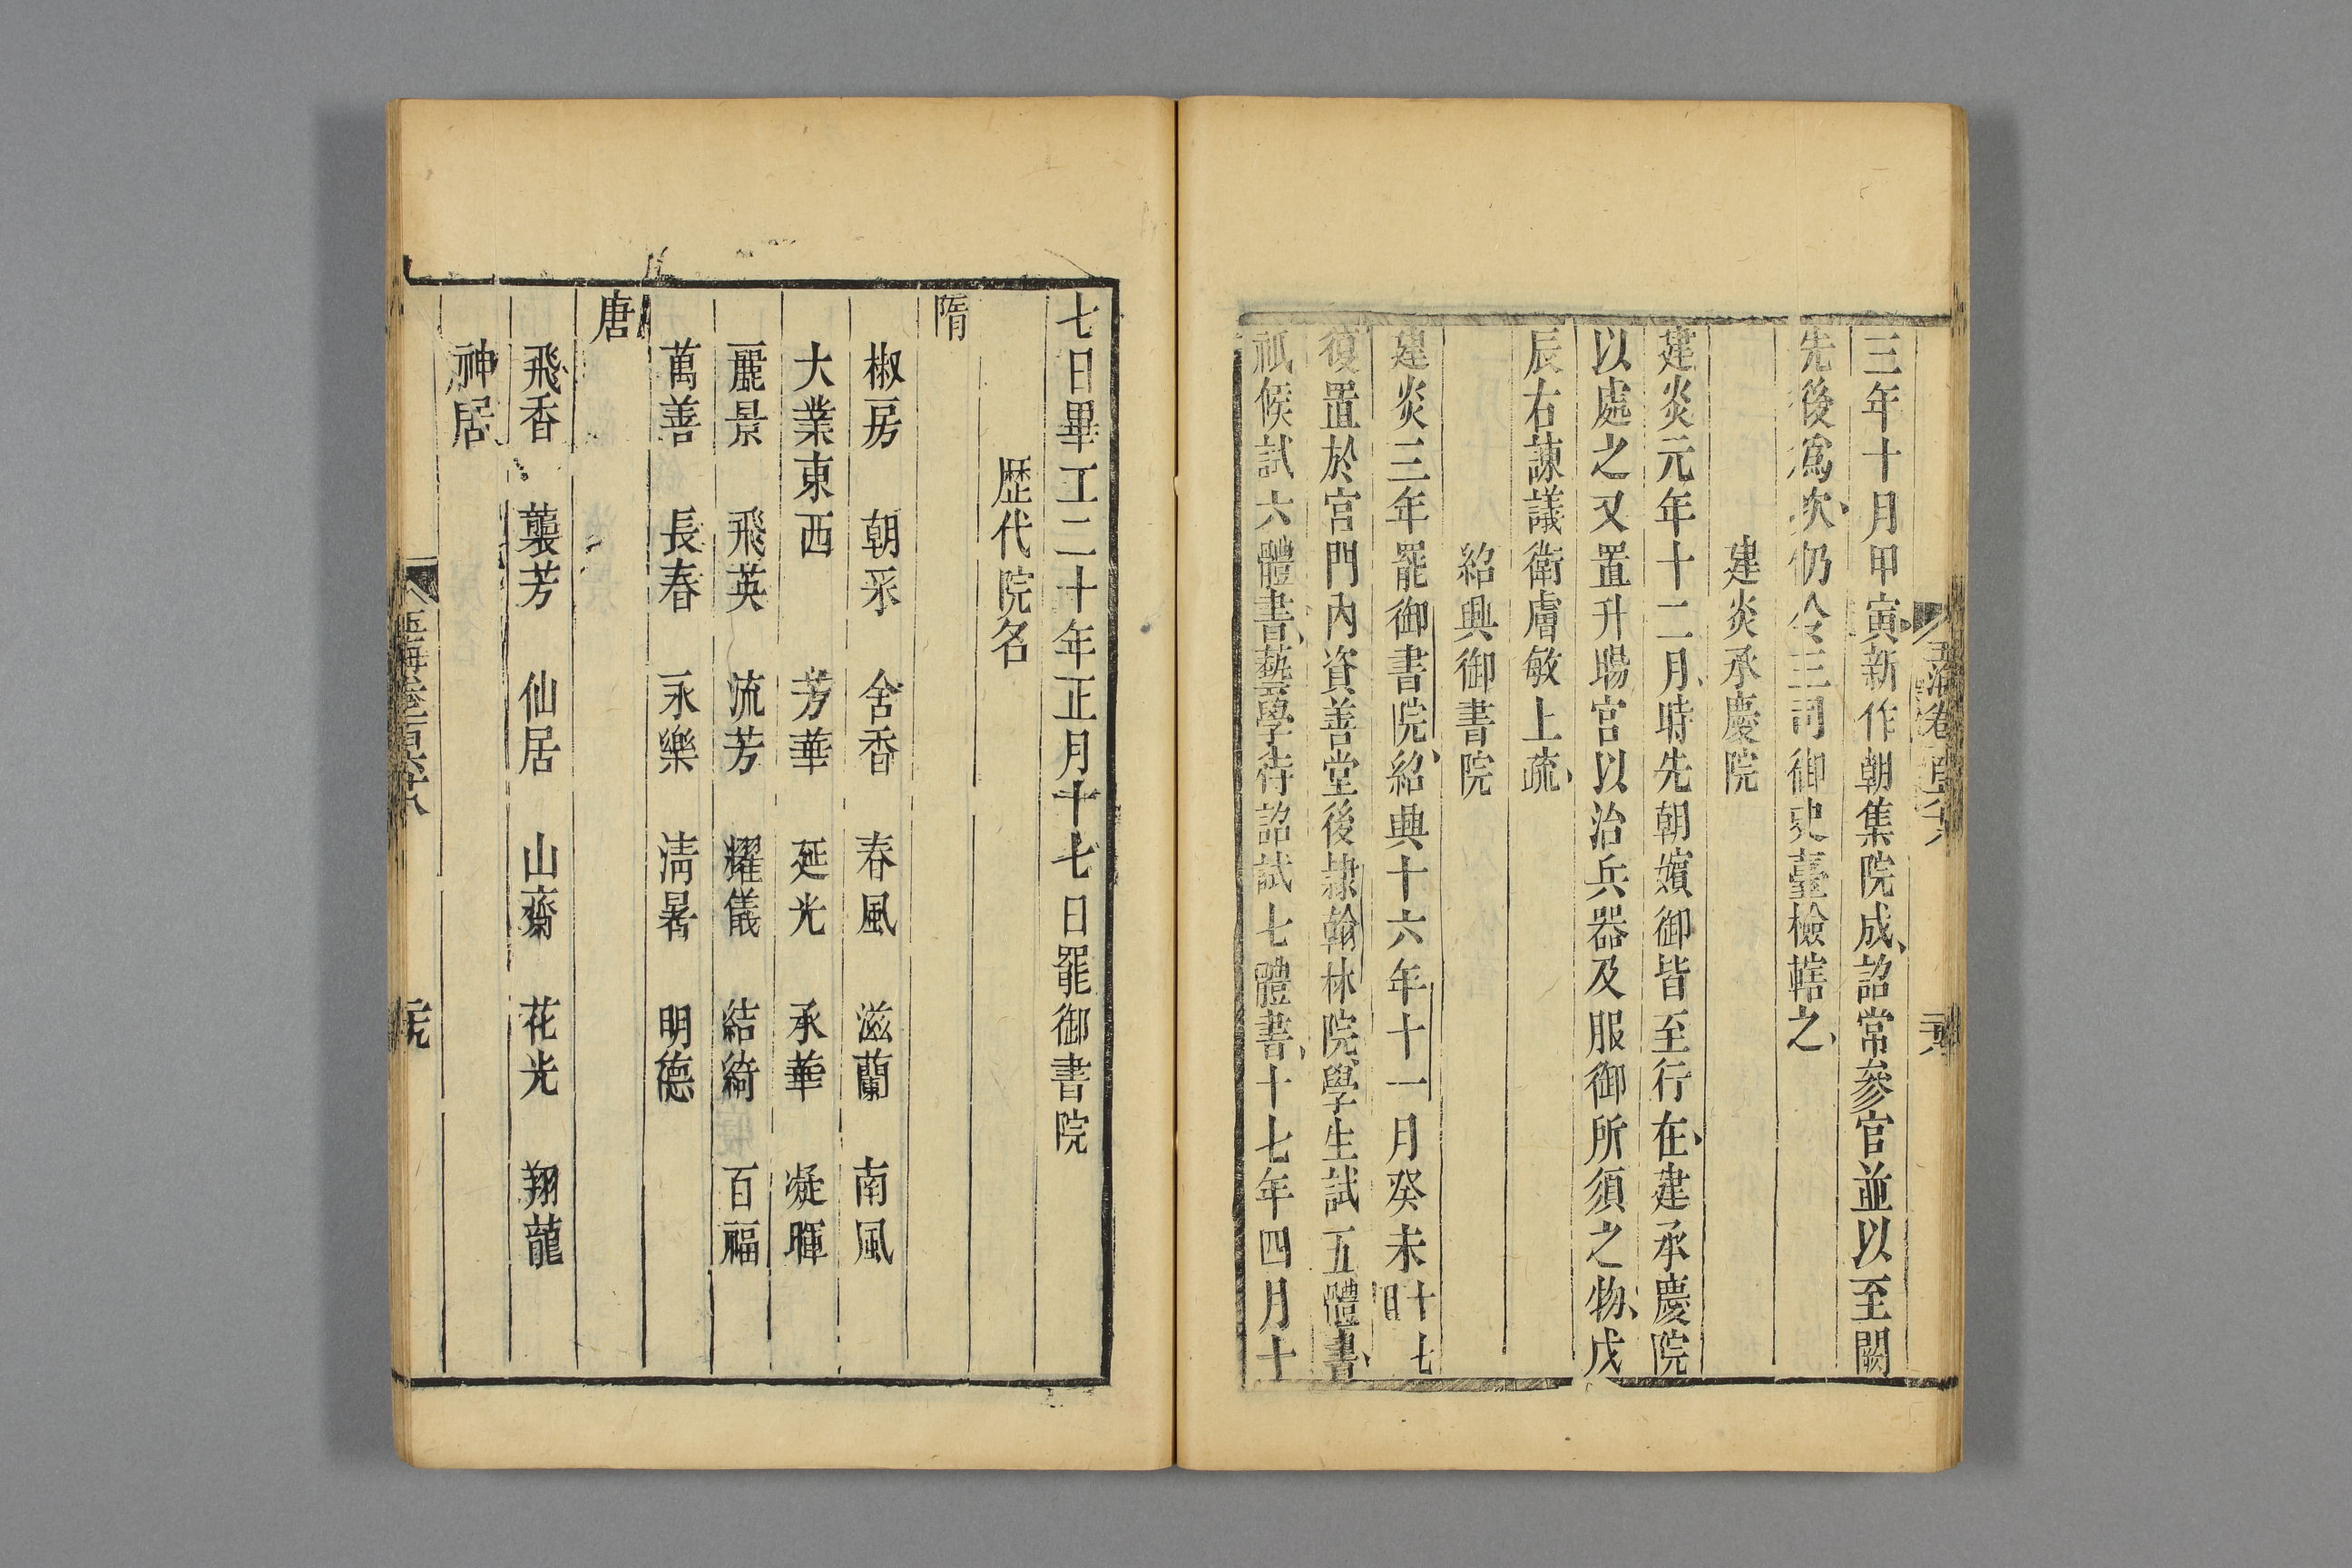 三年十月甲寅新作朝集院成詔常參官並以至闕
先後爲次仍令三司御史臺檢轄之
建炎承慶院
建炎元年十二月時先朝嬪御皆至行在建承慶院
以處之又置升暘宮以治兵器及服御所須之物戊
辰右諫議衛膚敏上疏
紹興御書院
建炎三年罷御書院紹興十六年十一月癸未十七日
復置於宮門內資善堂後隷翰林院學生試五體書
祇候試六體書藝學待詔試七體書十七年四月十
七日畢工二十年正月十七日罷御書院
歷代院名
隋
椒房 朝采 舍香 春風 滋蘭 南風
大業東西 芳華 延光 承華 凝暉
麗景 飛英 流芳 耀儀 結綺 百福
萬善 長春 永樂 清暑 明德
唐
飛香 襲芳 仙居 山齋 花光 翔龍
神居